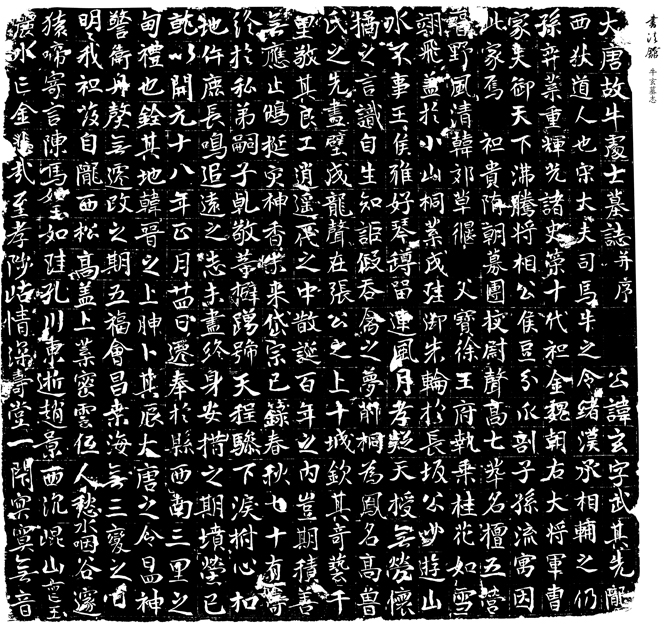 大唐故牛處士墓誌并序 公諱玄字武其先隴
西狄道人也宋大夫司馬牛之令緒漢丞相輔之仍
孫弈葉重輝光諸史策十代祖金魏朝右大將軍曹
家失御天下沸騰將相公侯豆分瓜剖子孫流寓因
此家焉 祖貴隋朝募團校尉聲高七萃名擅五營
晉野風清韓郊草偃 父寶徐王府執乘桂花如雪
翊飛蓋於小山桐葉成珪御朱輪於長坂公少遊山
水不事王侯雅好琴罇留連風月孝敬天授無勞懷
橘之言識自生知詎假吞禽之夢削桐為鳳名高魯
氏之先畫壁成龍聲在張公之上十城欽其奇藝千
里敬其良工逍遙 之中散誕百年之內豈期積善
無應止鵩挻灾神香 來岱宗已錄春秋七十有
終於私第嗣子 敬等擗踴號天程驂下淚拊心扣
地仵鹿長鳴追遠之志未盡終身安措之期墳塋已
就以開元十八年正月廿四日遷奉於縣西南三里之
甸禮也銓其地韓晉之上胂卜其辰大唐之令昷神
警衛丹 無遷改之期五福會昌桑海無三變之
明 我祖 自隴西松高蓋上葉密雲低人愁水咽谷邃
猿啼寄言陳馬如玉如珪孔川東逝趙景西沉崐山 玉
水亡金 哉至孝陟岵情深壽堂一閇 寞無音